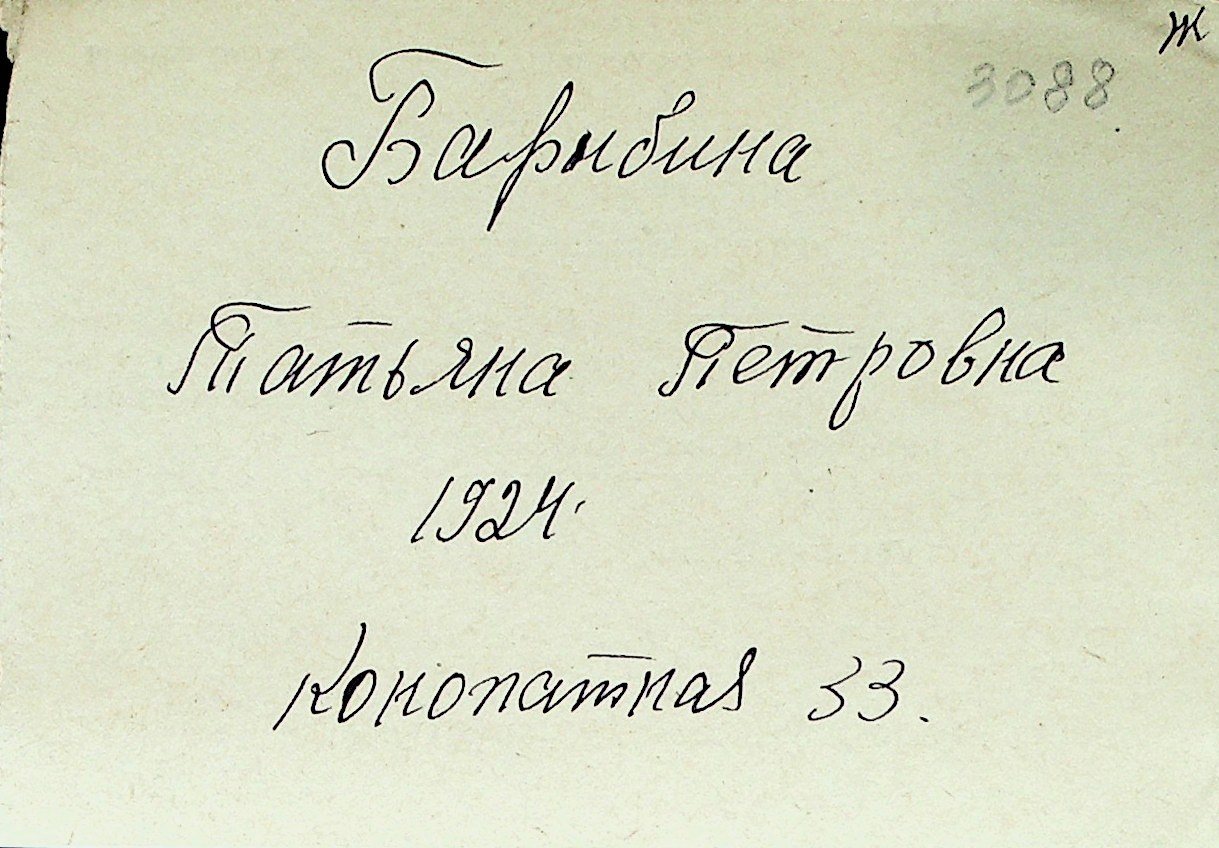 Ж
3088
Барыбина
Татьяна Петровна
1924.
Конопатная 33.